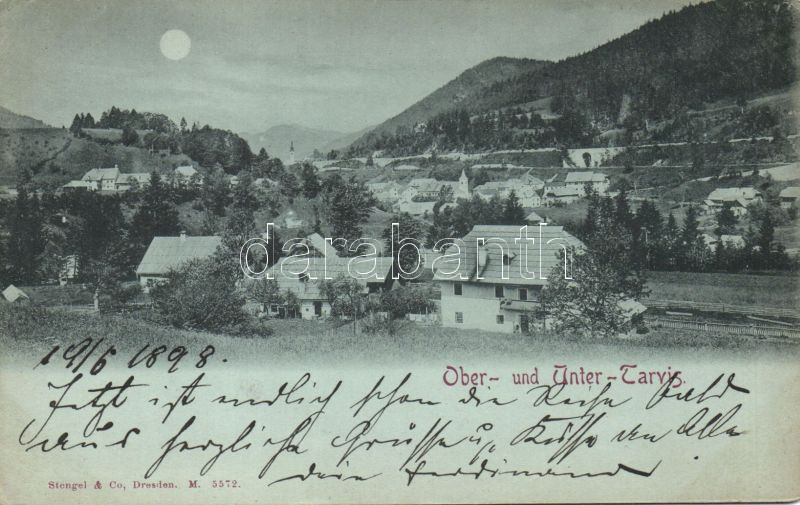 darabanth
19/6 1898.
Ober- und Unter-Tarvis.
Jetzt ist endlich schon die Reise bald
aus herzliche Grüsse u. Küsse an Alle
dein Ferdinand
Stengel & Co, Dresden. M. 5572.